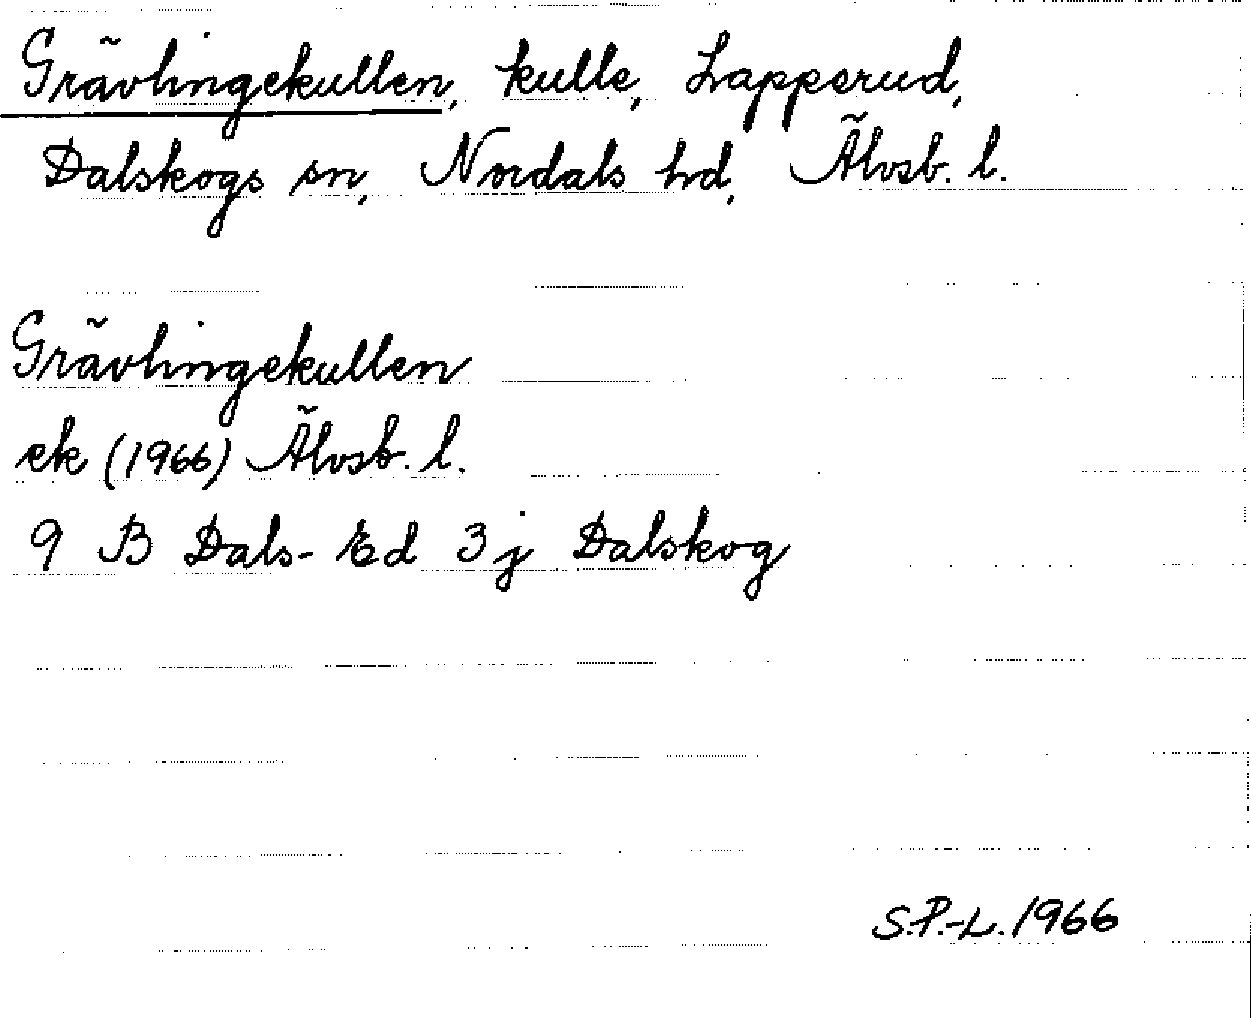 Grävlingekullen, kulle, Lapperud,
Dalskogs sn, Nordals hd, Älvsb. l.
Grävlingekullen
ek (1966) Älvsb. l.
9 B Dals-Ed 3 j Dalskog
S.P.-L. 1966